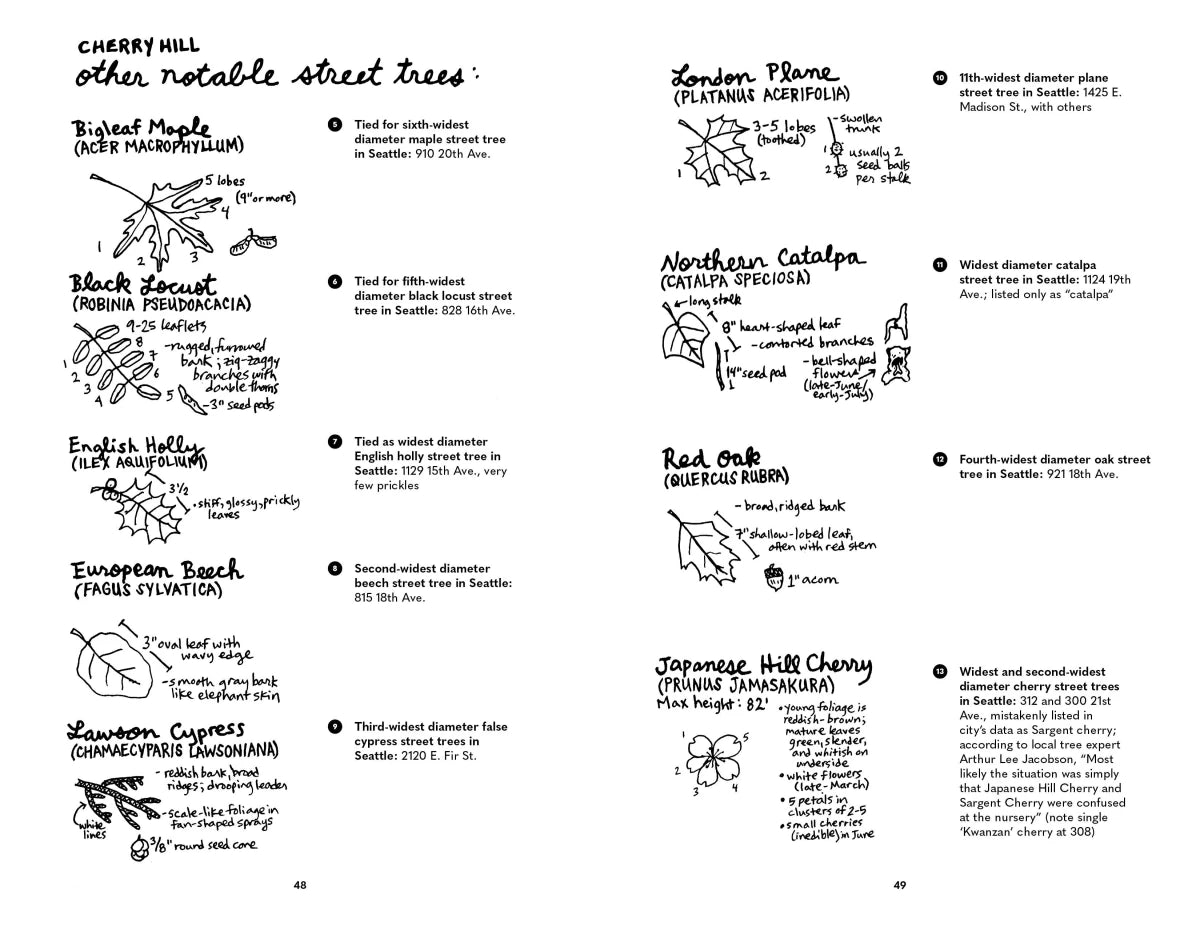 CHERRY HILL
other notable street trees:
Bigleaf Maple
(ACER MACROPHYLLUM)
5 lobes
(9" or more)
4
1
2
3
5
Tied for sixth-widest
diameter maple street tree
in Seattle: 910 20th Ave.
Black Locust
(ROBINIA PSEUDOACACIA)
9-25 leaflets
8
-rugged, furrowed
bark; zig-zaggy
branches with
double thorns
7
1
2
6
3
4
5
-3" seed pods
6
Tied for fifth-widest
diameter black locust street
tree in Seattle: 828 16th Ave.
English Holly
(ILEX AQUIFOLIUM)
3 1/2
• stiff, glossy, prickly
leaves
7
Tied as widest diameter
English holly street tree in
Seattle: 1129 15th Ave., very
few prickles
European Beech
(FAGUS SYLVATICA)
3" oval leaf with
wavy edge
-smooth gray bark
like elephant skin
8
Second-widest diameter
beech street tree in Seattle:
815 18th Ave.
Lawson Cypress
(CHAMAECYPARIS LAWSONIANA)
- reddish bark, broad
ridges; drooping leader
-scale-like foliage in
fan-shaped sprays
white
lines
3/8" round seed cone
9
Third-widest diameter false
cypress street trees in
Seattle: 2120 E. Fir St.
48
London Plane
(PLATANUS ACERIFOLIA)
3-5 lobes
(toothed)
1
2
-swollen
trunk
1
usually 2
seed balls
per stalk
2
10
11th-widest diameter plane
street tree in Seattle: 1425 E.
Madison St., with others
Northern Catalpa
(CATALPA SPECIOSA)
long stalk
8" heart-shaped leaf
-contorted branches
14" seed pod
-bell-shaped
flowers
(late-June/
early-July)
11
Widest diameter catalpa
street tree in Seattle: 1124 19th
Ave.; listed only as “catalpa”
Red Oak
(QUERCUS RUBRA)
- broad, ridged bark
7" shallow-lobed leaf,
often with red stem
1" acorn
12
Fourth-widest diameter oak street
tree in Seattle: 921 18th Ave.
Japanese Hill Cherry
(PRUNUS JAMASAKURA)
Max height: 82'
1
5
2
3
4
• young foliage is
reddish-brown;
mature leaves
green, slender,
and whitish on
underside
• white flowers
(late-March)
• 5 petals in
clusters of 2-5
• small cherries
(inedible) in June
13
Widest and second-widest
diameter cherry street trees
in Seattle: 312 and 300 21st
Ave., mistakenly listed in
city’s data as Sargent cherry;
according to local tree expert
Arthur Lee Jacobson, “Most
likely the situation was simply
that Japanese Hill Cherry and
Sargent Cherry were confused
at the nursery” (note single
‘Kwanzan’ cherry at 308)
49